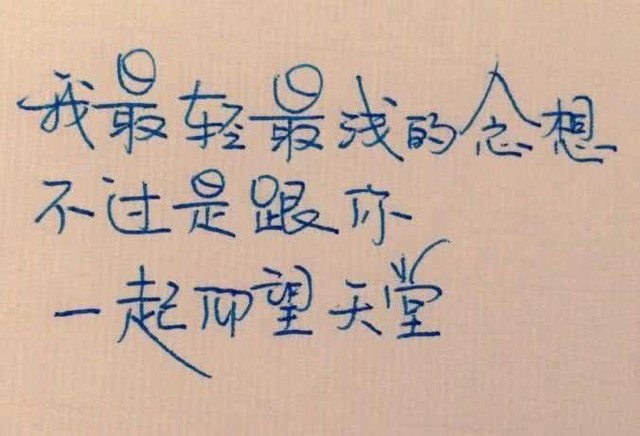 我最轻最浅的念想
不过是跟你
一起仰望天堂